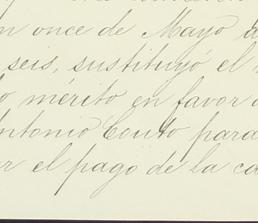 n once de Mayo d
seis, sustituyó el
o mérito en favor
Antonio Couto para
r el pago de la ca